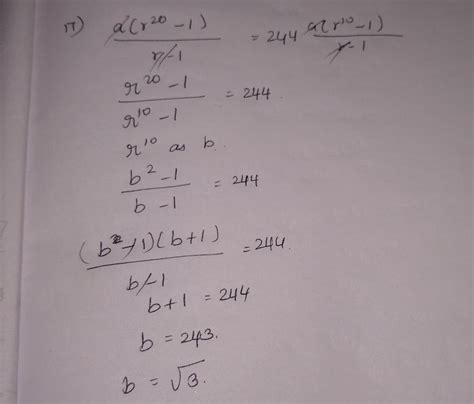 17) a(r²⁰ -1) / r-1 = 244 a(r¹⁰-1) / r-1
r²⁰ -1 / r¹⁰ -1 = 244.
r¹⁰ as b.
b² -1 / b -1 = 244
(b²-1)(b+1) / b-1 = 244.
b+1 = 244
b = 243.
b = √3.